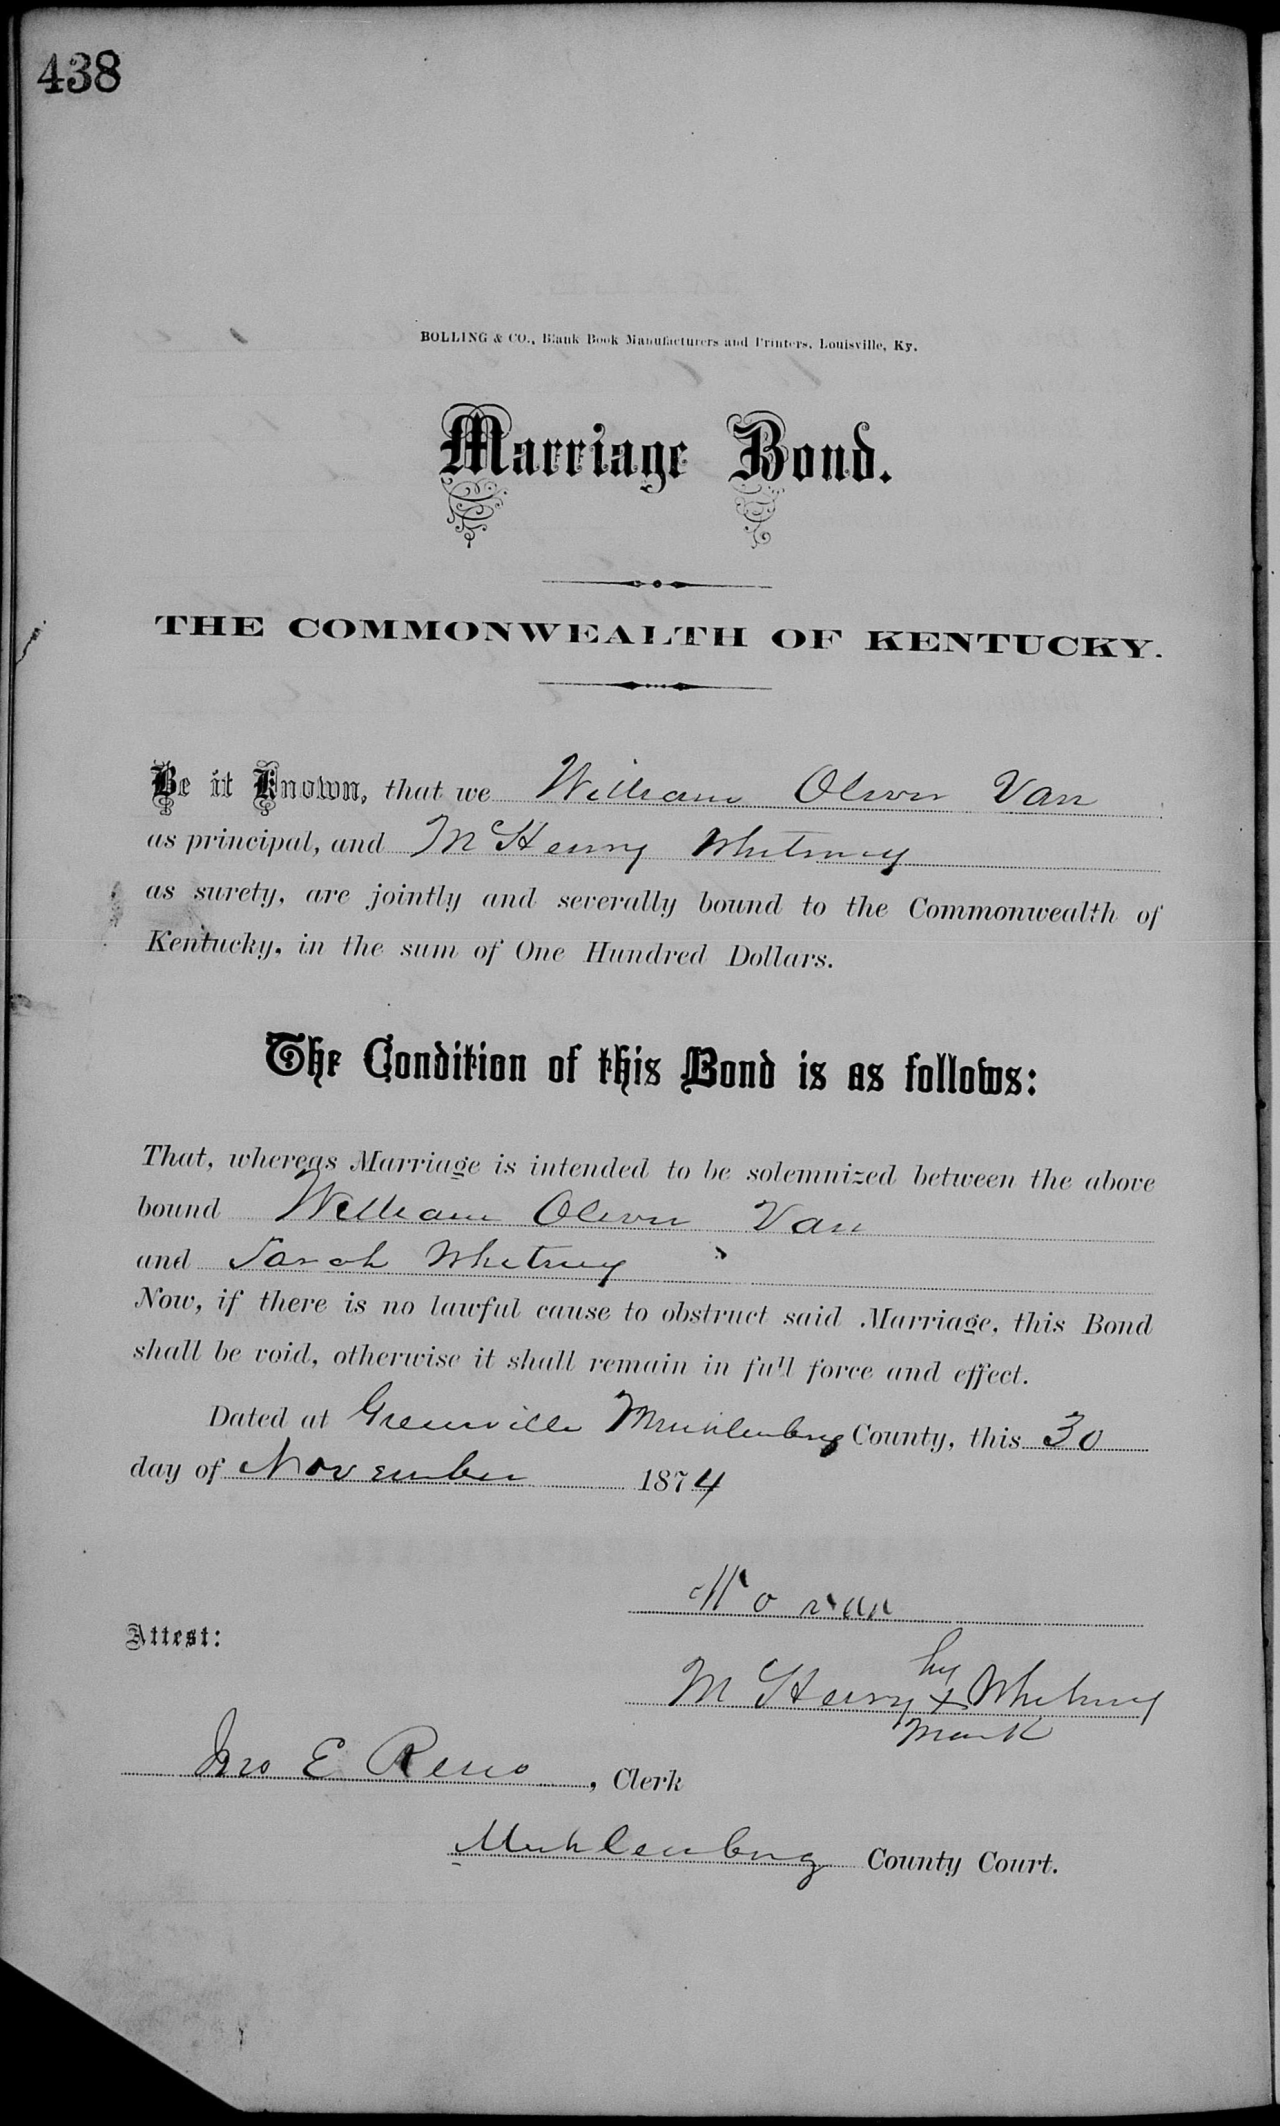 438
BOLLING & CO., Blank Book Manufacturers and Printers, Louisville, Ky.
Marriage Bond.
THE COMMONWEALTH OF KENTUCKY.
Be it Known, that we William Oliver Van
as principal, and McHenry Whitney
as surety, are jointly and severally bound to the Commonwealth of
Kentucky, in the sum of One Hundred Dollars.
The Condition of this Bond is as follows:
That, whereas Marriage is intended to be solemnized between the above
bound William Oliver Van
and Sarah Whitney
Now, if there is no lawful cause to obstruct said Marriage, this Bond
shall be void, otherwise it shall remain in full force and effect.
Dated at Greenville Muhlenburg County, this 30
day of November 1874
W o van
Attest:
his
McHenry x Whitney
mark
Jno E Reno, Clerk
Muhlenburg County Court.